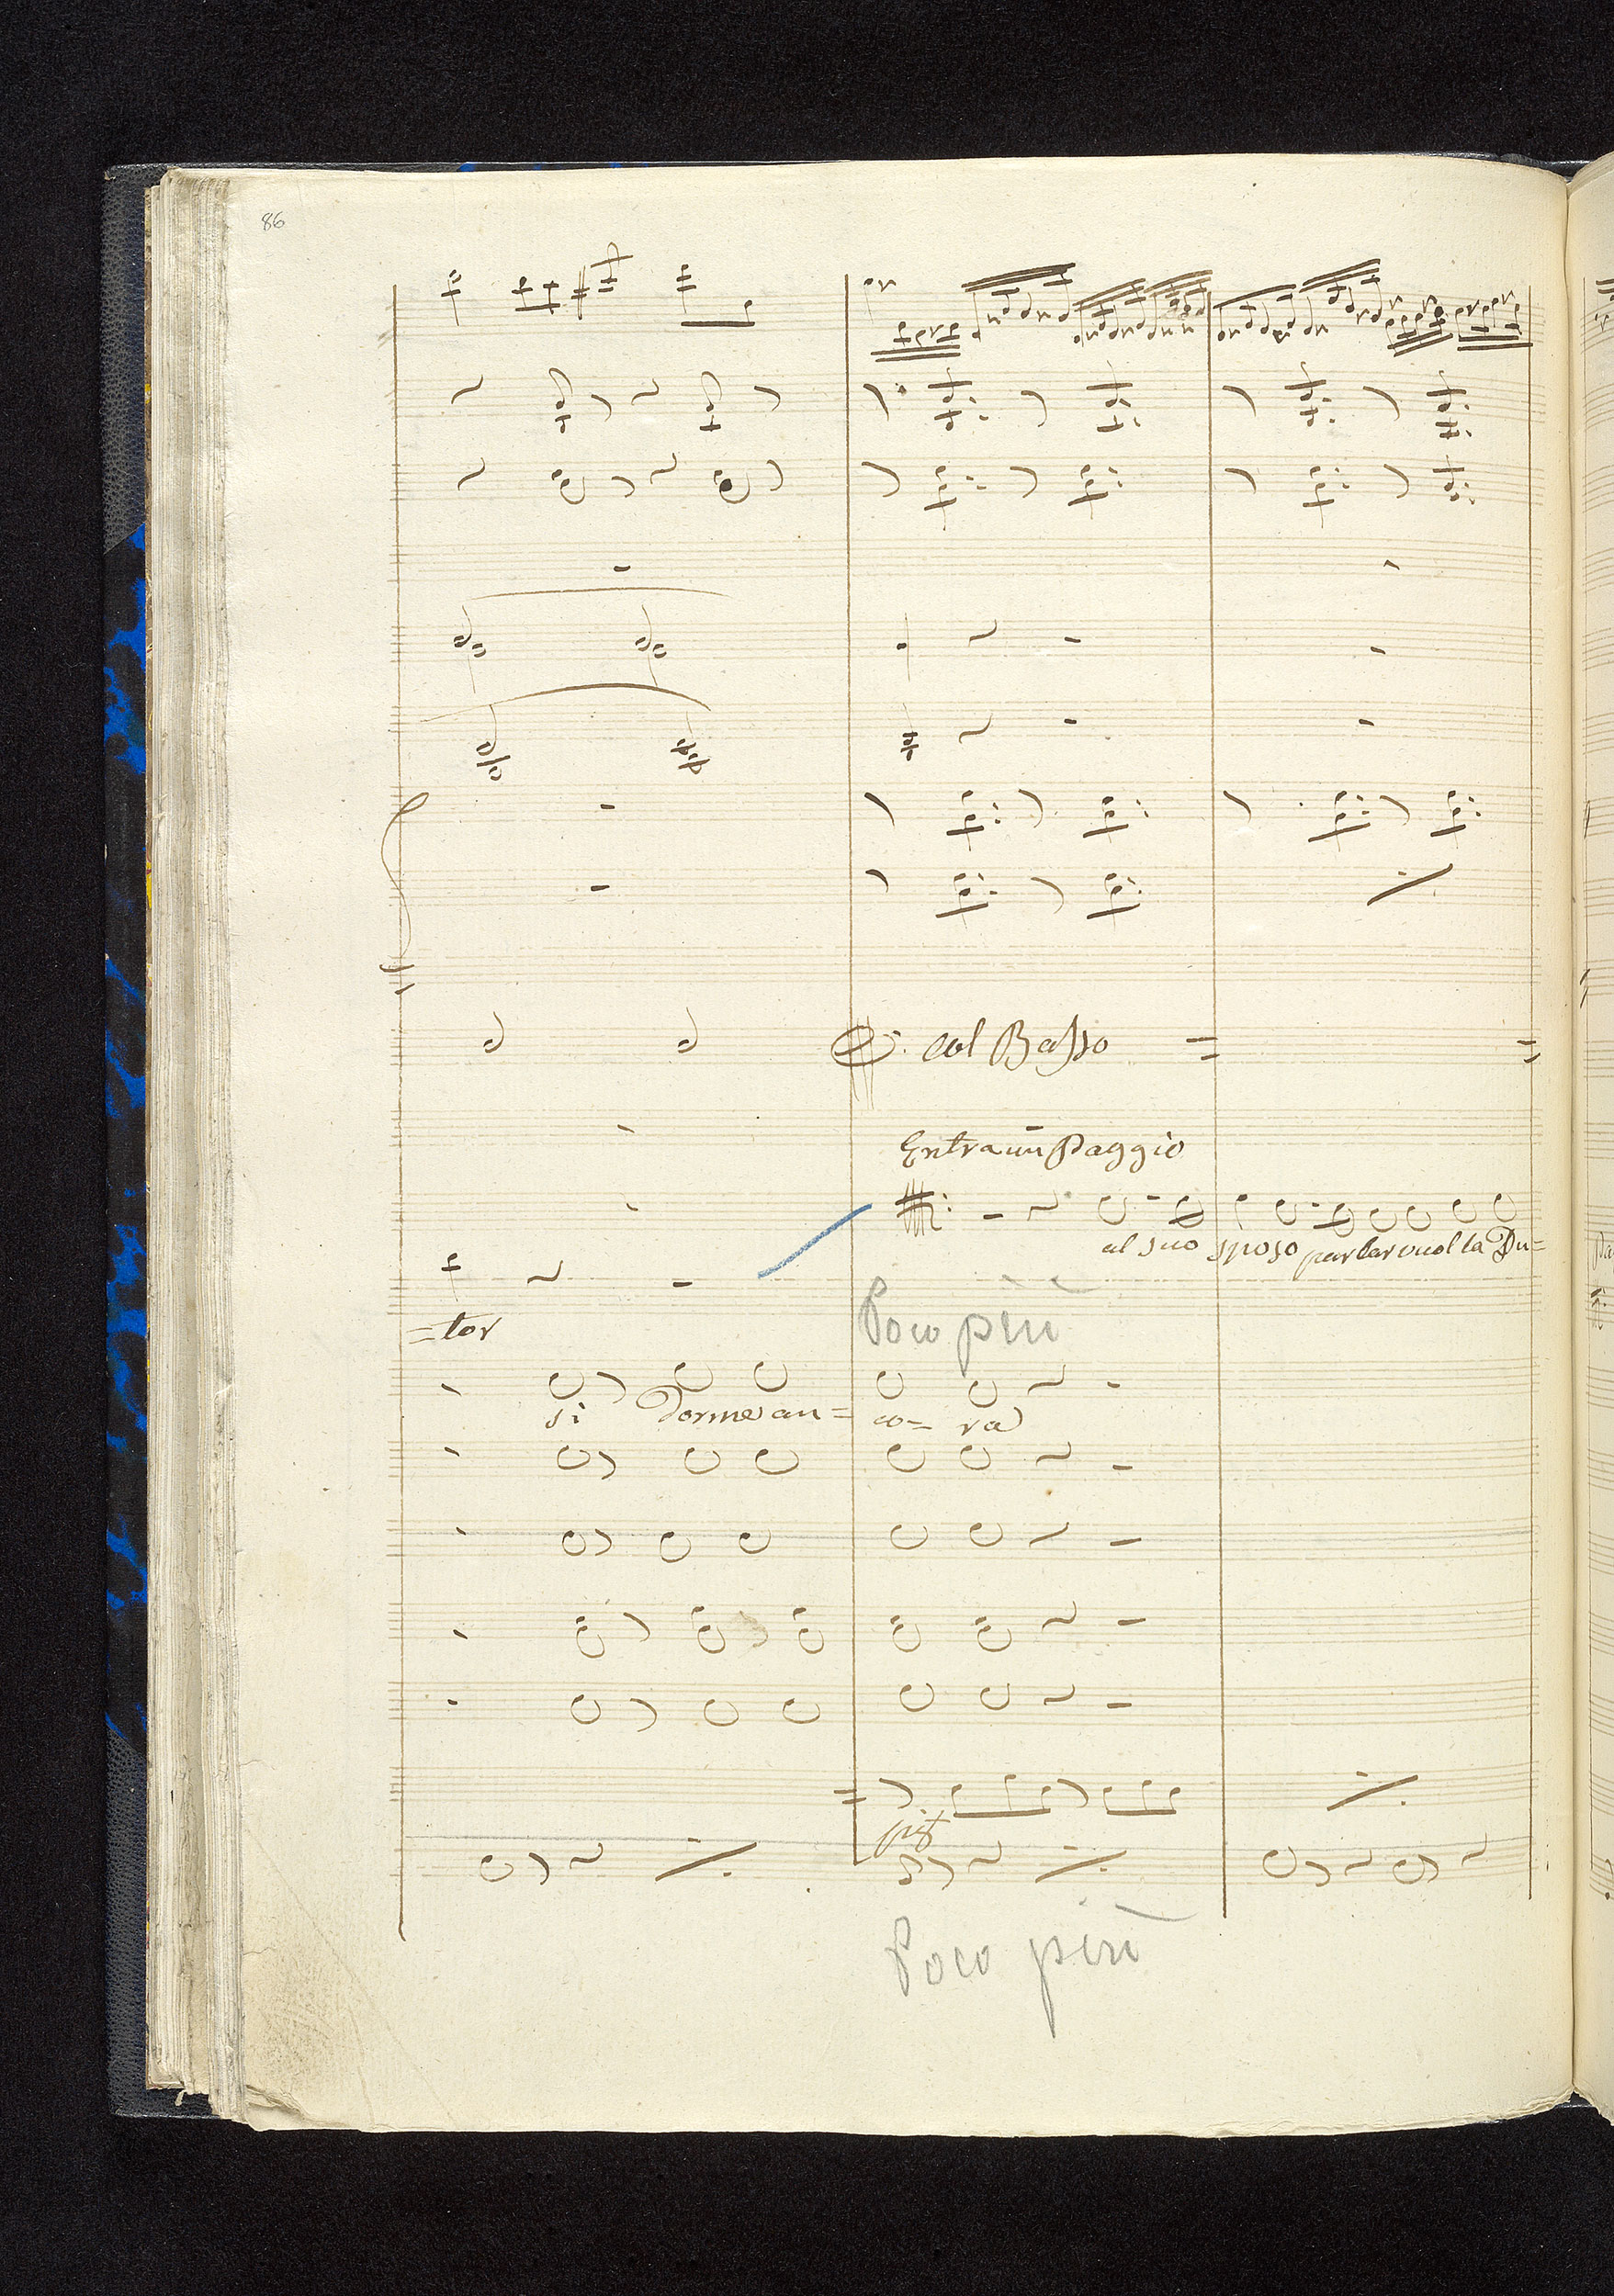 86
col Basso
Entra un Paggio
al suo sposo parlar vuol la Du=
=tor
Poco più
si dorme an= co= ra
piz
Poco più